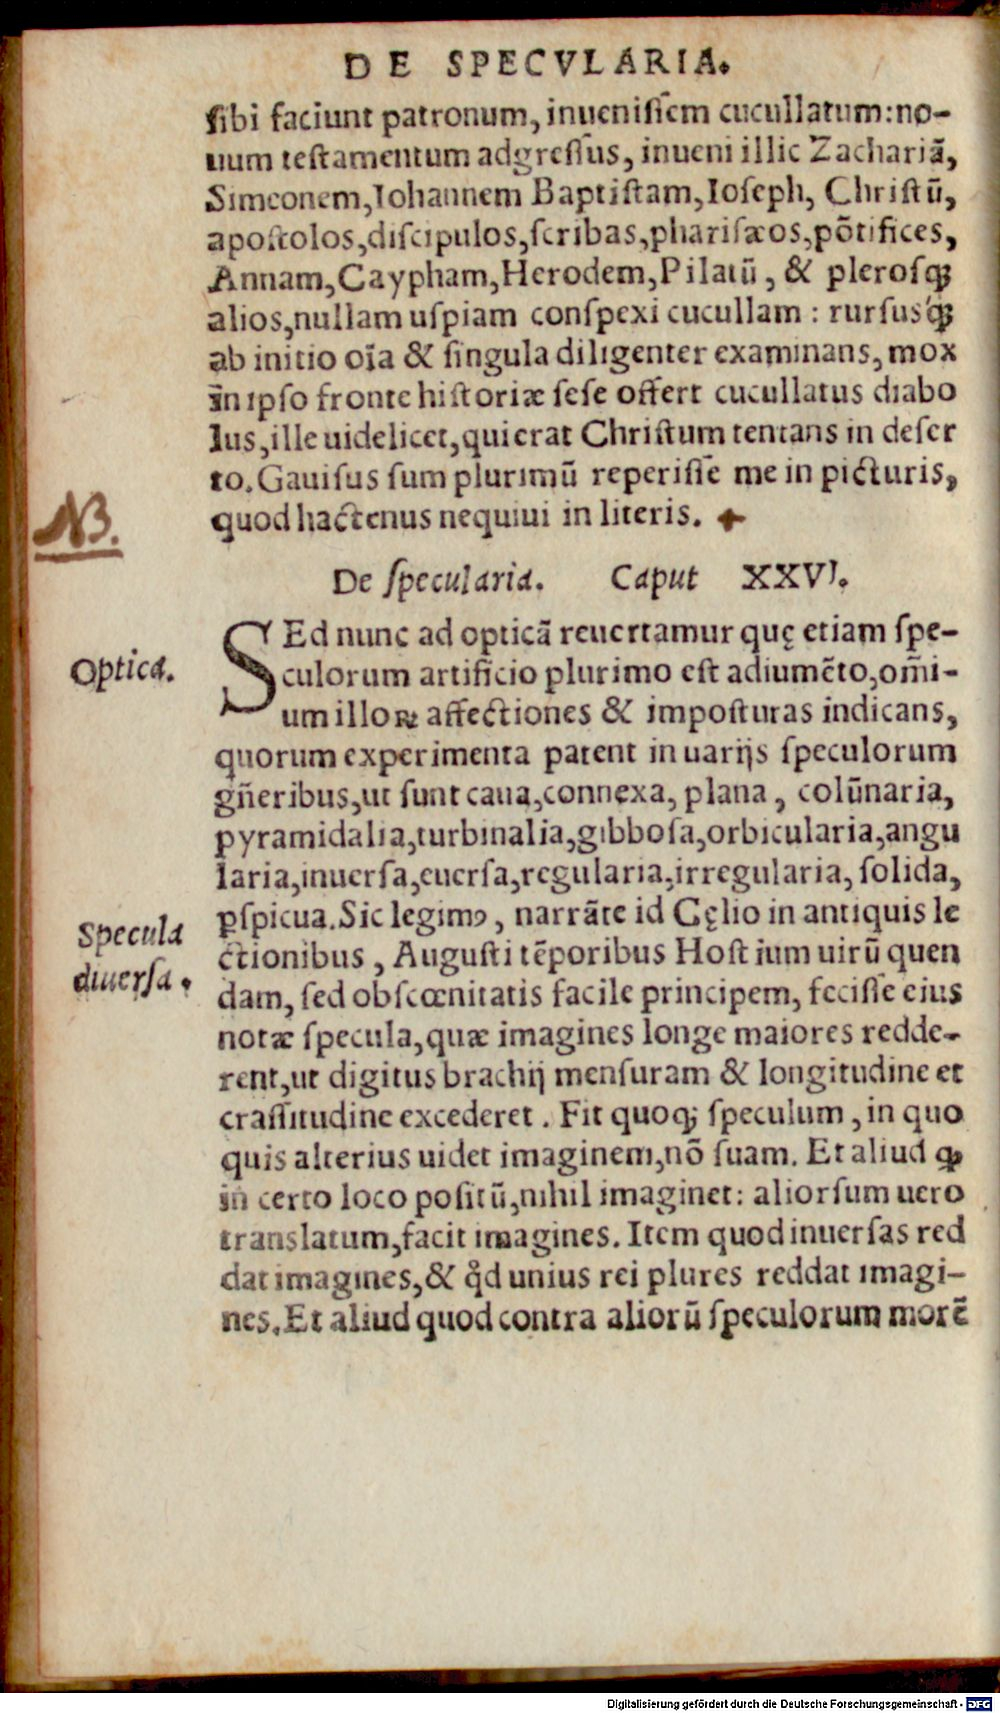 DE SPECVLARIA.
sibi faciunt patronum, inuenissem cucullatum: no-
uum testamentum adgressus, inueni illic Zachariā,
Simeonem, Iohannem Baptistam, Ioseph, Christū,
apostolos, discipulos, scribas, pharisæos, pōtifices,
Annam, Caypham, Herodem, Pilatū, & plerosq;
alios, nullam uspiam conspexi cucullam : rursus q́;
ab initio oīa & singula diligenter examinans, mox
in ipso fronte historiæ sese offert cucullatus diabo
lus, ille uidelicet, qui erat Christum tentans in deser
to. Gauisus sum plurimū reperisse me in picturis,
quod hactenus nequiui in literis.
NB.
De specularia. Caput XXVI.
SEd nunc ad opticā reuertamur quę etiam spe-
Optica.
culorum artificio plurimo est adiumēto, om̄i-
um illoꝝ affectiones & imposturas indicans,
quorum experimenta patent in uarijs speculorum
gñeribus, ut sunt caua, connexa, plana, colūnaria,
pyramidalia, turbinalia, gibbosa, orbicularia, angu
laria, inuersa, euersa, regularia, irregularia, solida,
ꝑspicua. Sic legimꝰ, narrāte id Cęlio in antiquis le
Specula
diuersa.
ctionibus, Augusti tēporibus Hostium uirū quen
dam, sed obscœnitatis facile principem, fecisse eius
notæ specula, quæ imagines longe maiores redde-
rent, ut digitus brachij mensuram & longitudine et
crassitudine excederet. Fit quoq; speculum, in quo
quis alterius uidet imaginem, nō suam. Et aliud ꝙ
in certo loco positū, nihil imaginet: aliorsum uero
translatum, facit imagines. Item quod inuersas red
dat imagines, & qd̊ unius rei plures reddat imagi-
nes. Et aliud quod contra aliorū speculorum morē
Digitalisierung gefördert durch die Deutsche Forschungsgemeinschaft - DFG